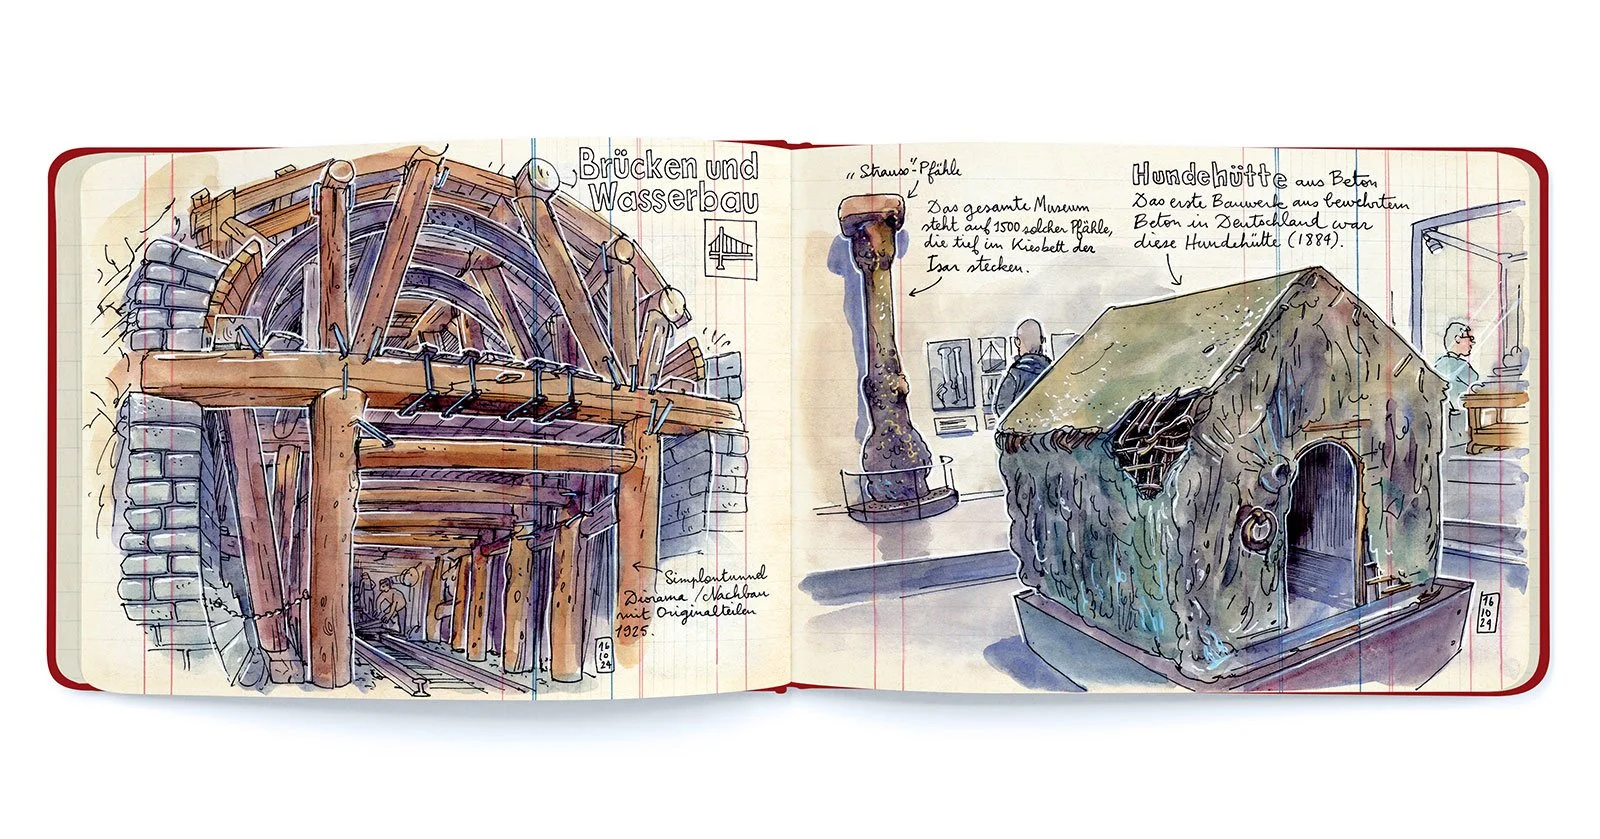 Brücken und
Wasserbau
Simplontunnel
Diorama/Nachbau
mit Originalteilen
1925.
16
10
24
„Strauss"-Pfähle
Das gesamte Museum
steht auf 1500 solcher Pfähle,
die tief im Kiesbett der
Isar stecken.
Hundehütte aus Beton
Das erste Bauwerk aus bewehrtem
Beton in Deutschland war
diese Hundehütte (1884).
16
10
24